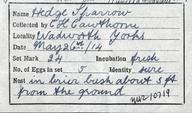 Name Hedge Sparrow
Collected by C H Cawthorne
Locality Wadworth Yorks
Date May 26th/14
Set Mark 24 Incubation fresh
No. of Eggs in set 5 Identity sure
Nest in briar bush about 3 ft
from the ground